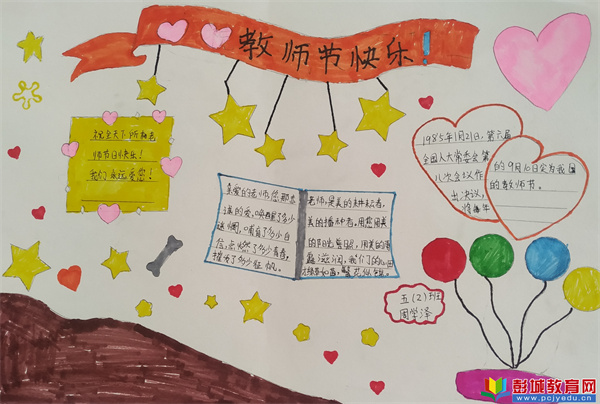 教师节快乐！
祝全天下所有老
师节日快乐！
我们永远爱您！
亲爱的老师，您那真
诚的爱，唤醒了多少
迷惘，哺育了多少自
信，点燃了多少青春，
摧发了多少征帆。
老师，是美的耕耘者，
美的播种者。用您用美
的阳光普照，用美的雨
露滋润，我们的心田
才绿草如茵，繁花似锦。
1985年1月21日，第六届
全国人大常委会第
八次会议作
出决议，
将每年
的9月10日定为我国
的教师节。
五（2）班
周学泽
彭城教育网
www.pcjyedu.cn